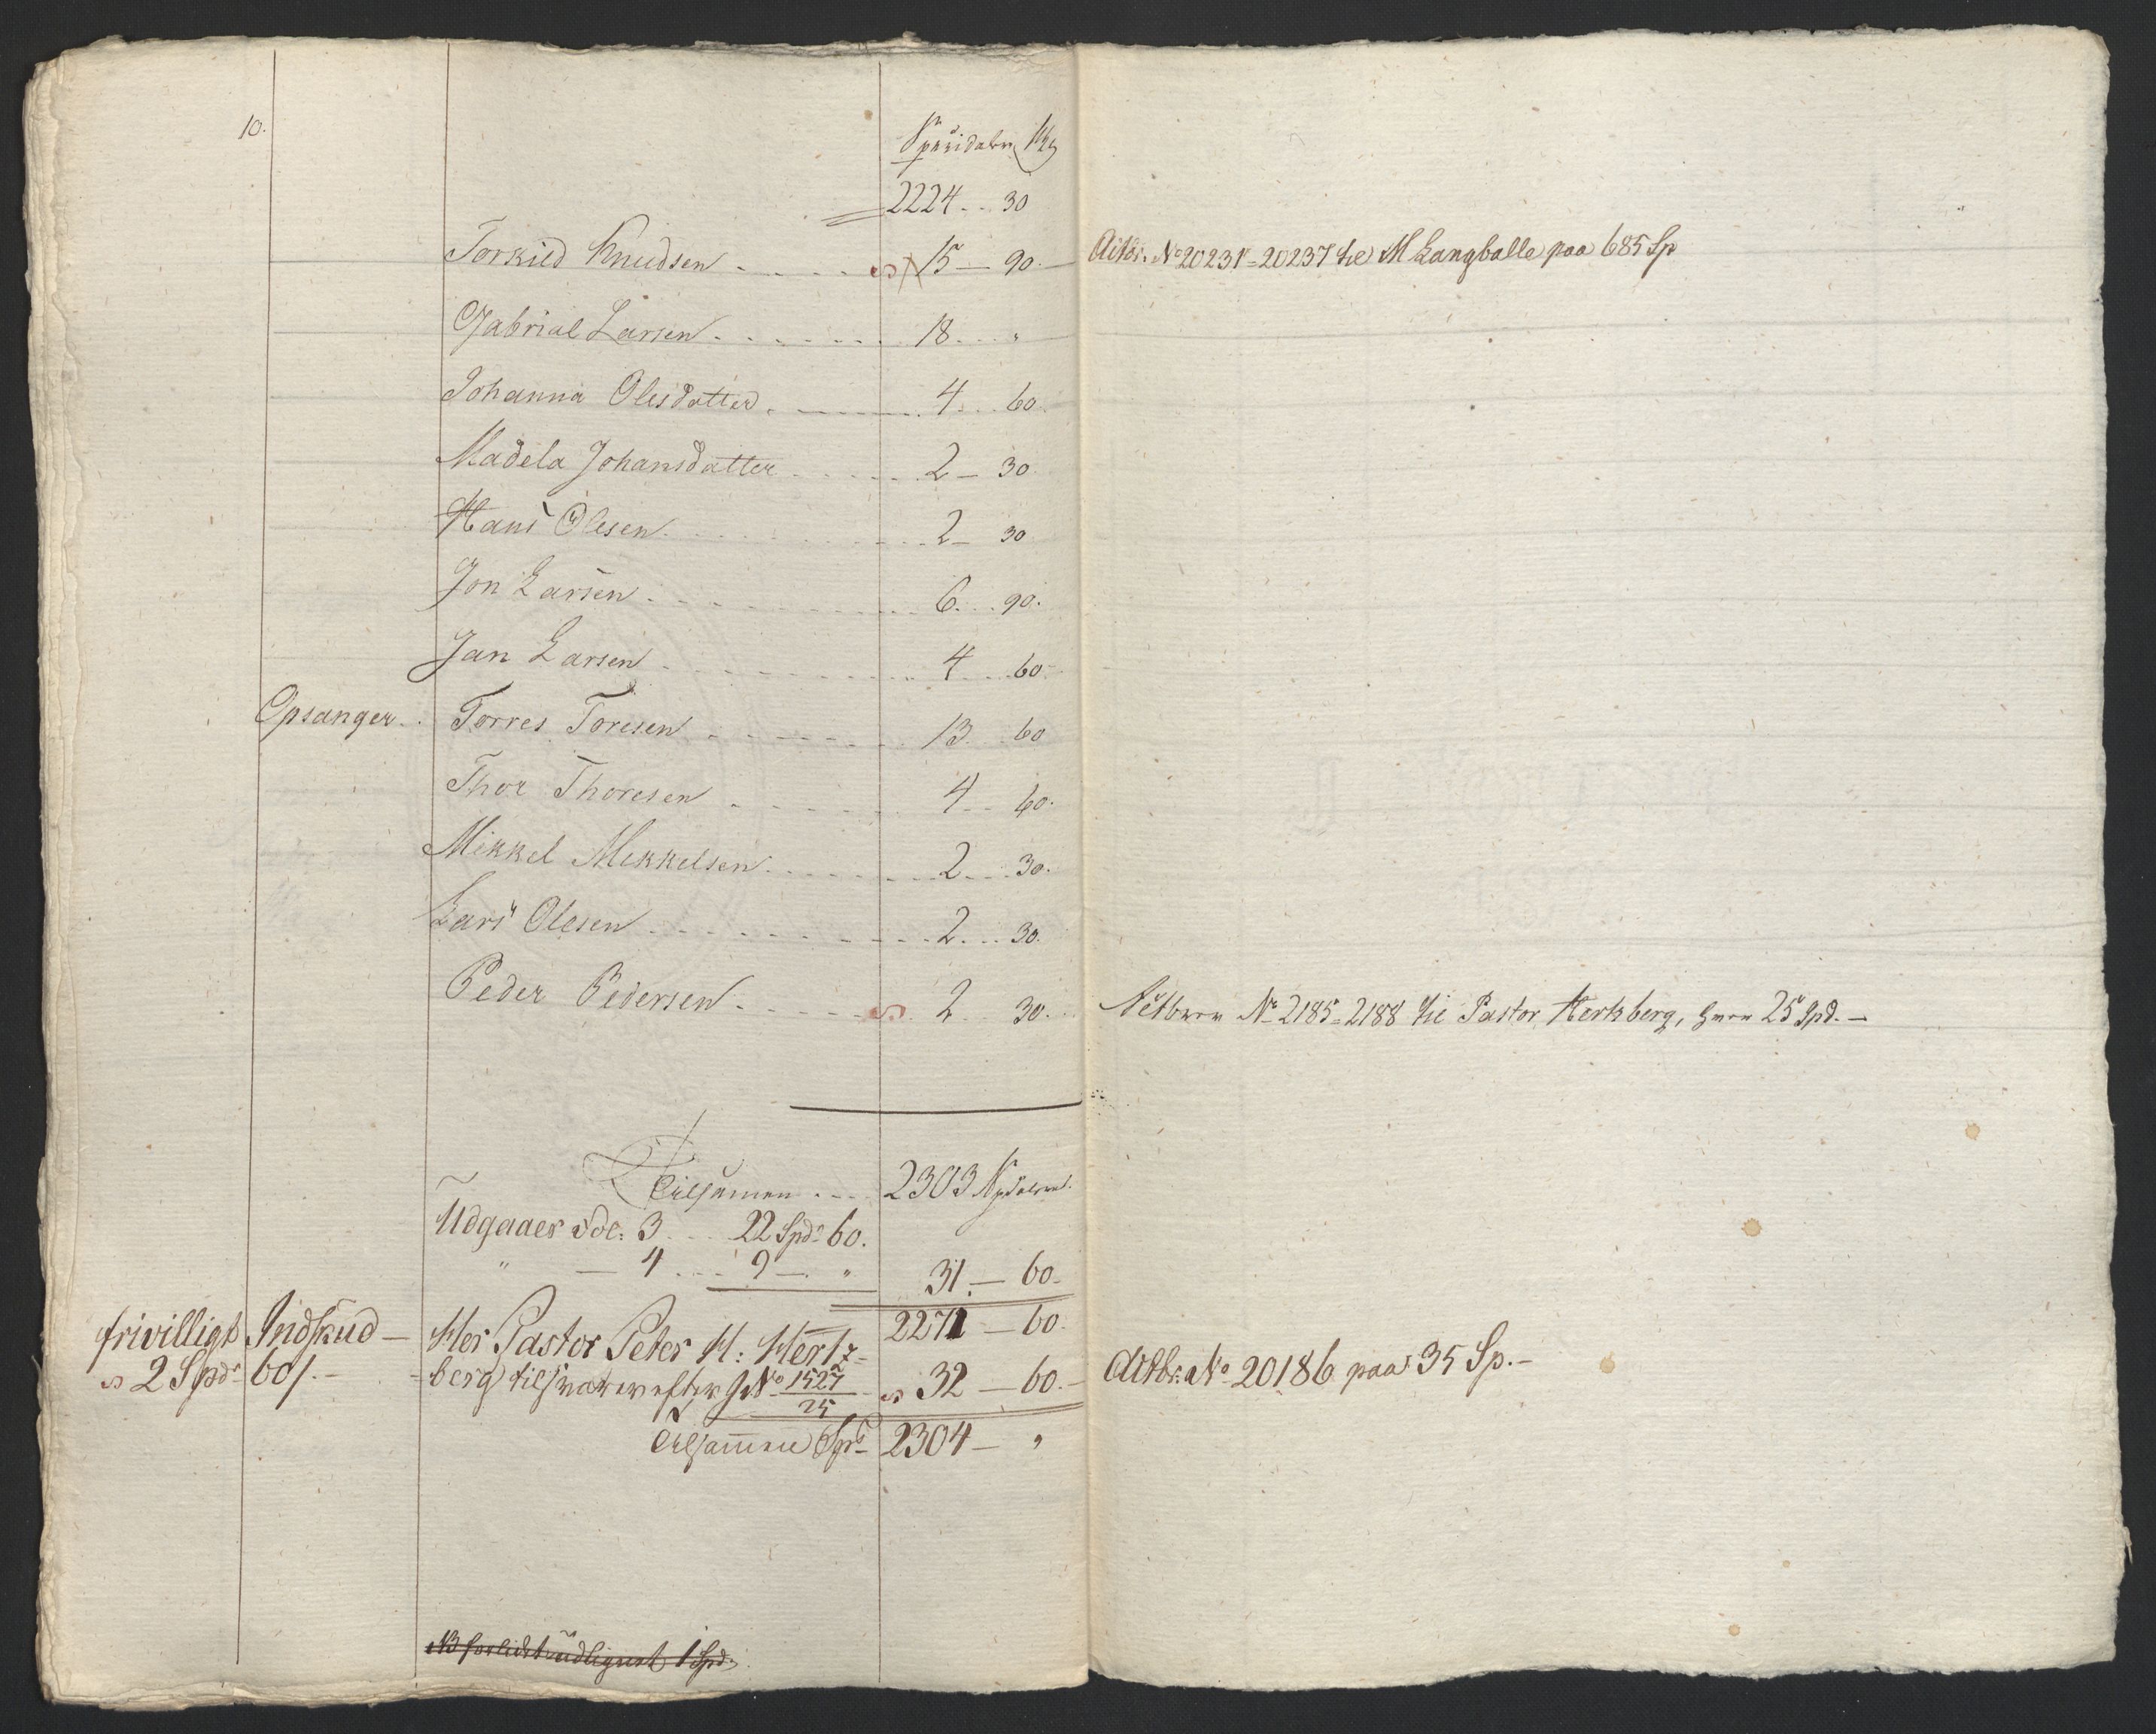 10.
Speciedaler
2224 .. 30
Torkild Knudsen . . . . . 15 — 90.
Gabrial Larsen . . . . . . 18 . . . "
Johanna Olesdatter . . . . 4 . . . 60.
Madela Johansdatter . . . . . 2 — 30.
Hans Olesen . . . . . 2 — 30
Jon Larsen . . . . . 6. . . 90.
Jan Larsen . . . . . 4 . . . 60.
Opsanger . . Torres Toresen . . . . . 13 . . 60
Thor Thoresen . . . . . 4 . . 60.
Mikkel Mekkelsen . . . . . 2 . . . 30.
Lars Olesen . . . . . 2 . . . 30.
Peder Pedersen . . . . . 2 . . 30.
Tilsamen . . . . 2303 Spdaler
Udgaaer Fol: 3 . . . 22 Spd 60.
" — 4 . . . 9 — " 31 — 60.
2271 — 60.
frivilligt Indskud — Her Pastor Peter H: Hertz-
2 Spdr 60 ſ. — berg tilsvarer efter No 1527/25 32 — 60. —
Tilsamme Spd 2304 — "
NB forlidet udlignet 1 Spd.
Actbr. No 20231 = 20237 til M Langballe paa 685 Sp
No 2185 = 2188 til Pastor Hertzberg, 25 Spd. —
Actbr. No 20186 paa 35 Sp. —